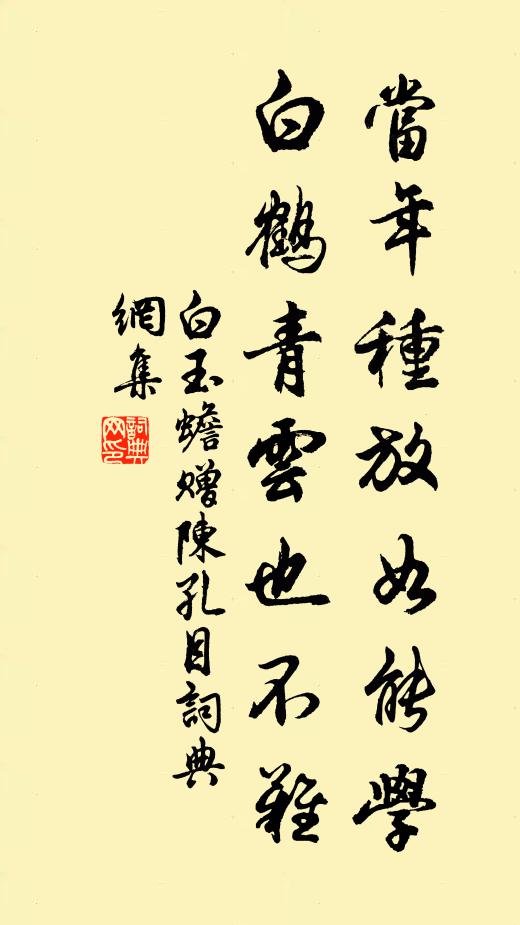 當年種放如能學
白鶴青雲也不難
白玉蟾赠陳孔目詞典
網集
詞典
网印